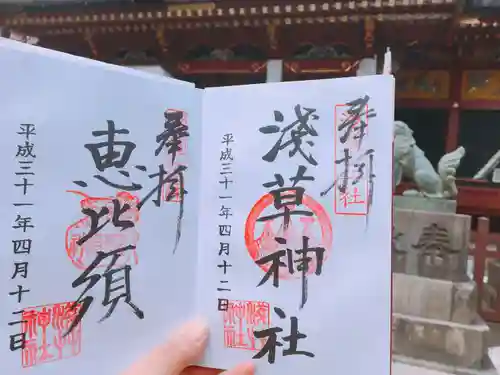 奉拝
淺草神社
平成三十一年四月十二日
奉拝
恵比須
平成三十一年四月十二日